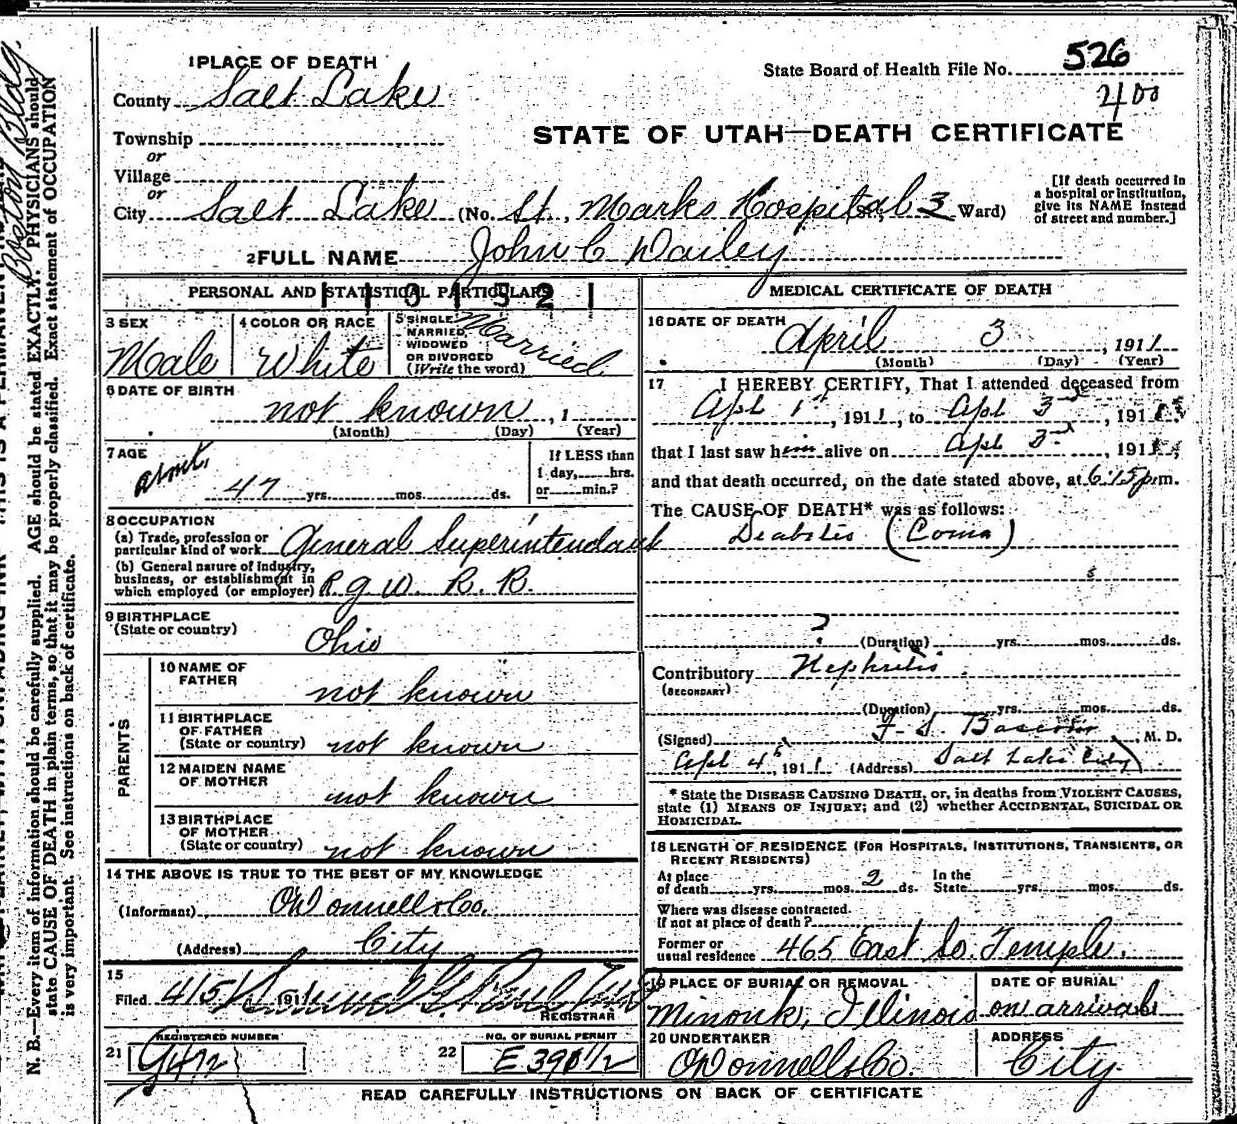 1 PLACE OF DEATH
State Board of Health File No. 526
County Salt Lake
2400
Township
STATE OF UTAH—DEATH CERTIFICATE
or
Village
or
City Salt Lake (No. St. Marks Hospital 3 Ward)
[If death occurred in
a hospital or institution,
give its NAME instead
of street and number.]
2 FULL NAME John C Dailey
PERSONAL AND STATISTICAL PARTICULARS
1101521
3 SEX
Male
4 COLOR OR RACE
White
5 SINGLE
MARRIED,
WIDOWED
OR DIVORCED
(Write the word)
Married
6 DATE OF BIRTH
not known, 1
(Month) (Day) (Year)
7 AGE
about
47 yrs. mos. ds.
If LESS than
1 day, hrs.
or min.?
8 OCCUPATION
(a) Trade, profession or
particular kind of work General Superintendant
(b) General nature of Industry,
business, or establishment in
which employed (or employer) R. G. W. R. R.
9 BIRTHPLACE
(State or country)
Ohio
PARENTS
10 NAME OF
FATHER
not known
11 BIRTHPLACE
OF FATHER
(State or country) not known
12 MAIDEN NAME
OF MOTHER
not known
13 BIRTHPLACE
OF MOTHER
(State or country) not known
14 THE ABOVE IS TRUE TO THE BEST OF MY KNOWLEDGE
(Informant) O'Donnell & Co.
(Address) City
15
Filed 4/5 191
REGISTRAR
REGISTERED NUMBER
21 G412
NO. OF BURIAL PERMIT
22 E 390 1/2
MEDICAL CERTIFICATE OF DEATH
16 DATE OF DEATH
April 3, 1911
(Month) (Day) (Year)
17 I HEREBY CERTIFY, That I attended deceased from
Apl 1st, 1911, to Apl 3rd, 1911
that I last saw him alive on Apl 3rd, 1911,
and that death occurred, on the date stated above, at 6:15 p.m.
The CAUSE OF DEATH* was as follows:
Diabetis (Coma)
?
(Duration) yrs. mos. ds.
Contributory Nephritis
(SECONDARY)
(Duration) yrs. mos. ds.
(Signed) F. S. Bascom, M. D.
Apl 4th, 1911 (Address) Salt Lake City
* State the DISEASE CAUSING DEATH, or, in deaths from VIOLENT CAUSES,
state (1) MEANS OF INJURY; and (2) whether ACCIDENTAL, SUICIDAL OR
HOMICIDAL.
18 LENGTH OF RESIDENCE (FOR HOSPITALS, INSTITUTIONS, TRANSIENTS, OR
RECENT RESIDENTS)
At place
of death yrs. mos. 2 ds.
In the
State yrs. mos. ds.
Where was disease contracted.
If not at place of death?
Former or
usual residence 465 East So. Temple.
19 PLACE OF BURIAL OR REMOVAL
Minonk, Illinois
DATE OF BURIAL
on arrival
20 UNDERTAKER
O'Donnell & Co.
ADDRESS
City
READ CAREFULLY INSTRUCTIONS ON BACK OF CERTIFICATE
N. B.—Every item of information should be carefully supplied. AGE should be stated EXACTLY. PHYSICIANS should
state CAUSE OF DEATH in plain terms, so that it may be properly classified. Exact statement of OCCUPATION
is very important. See instructions on back of certificate.